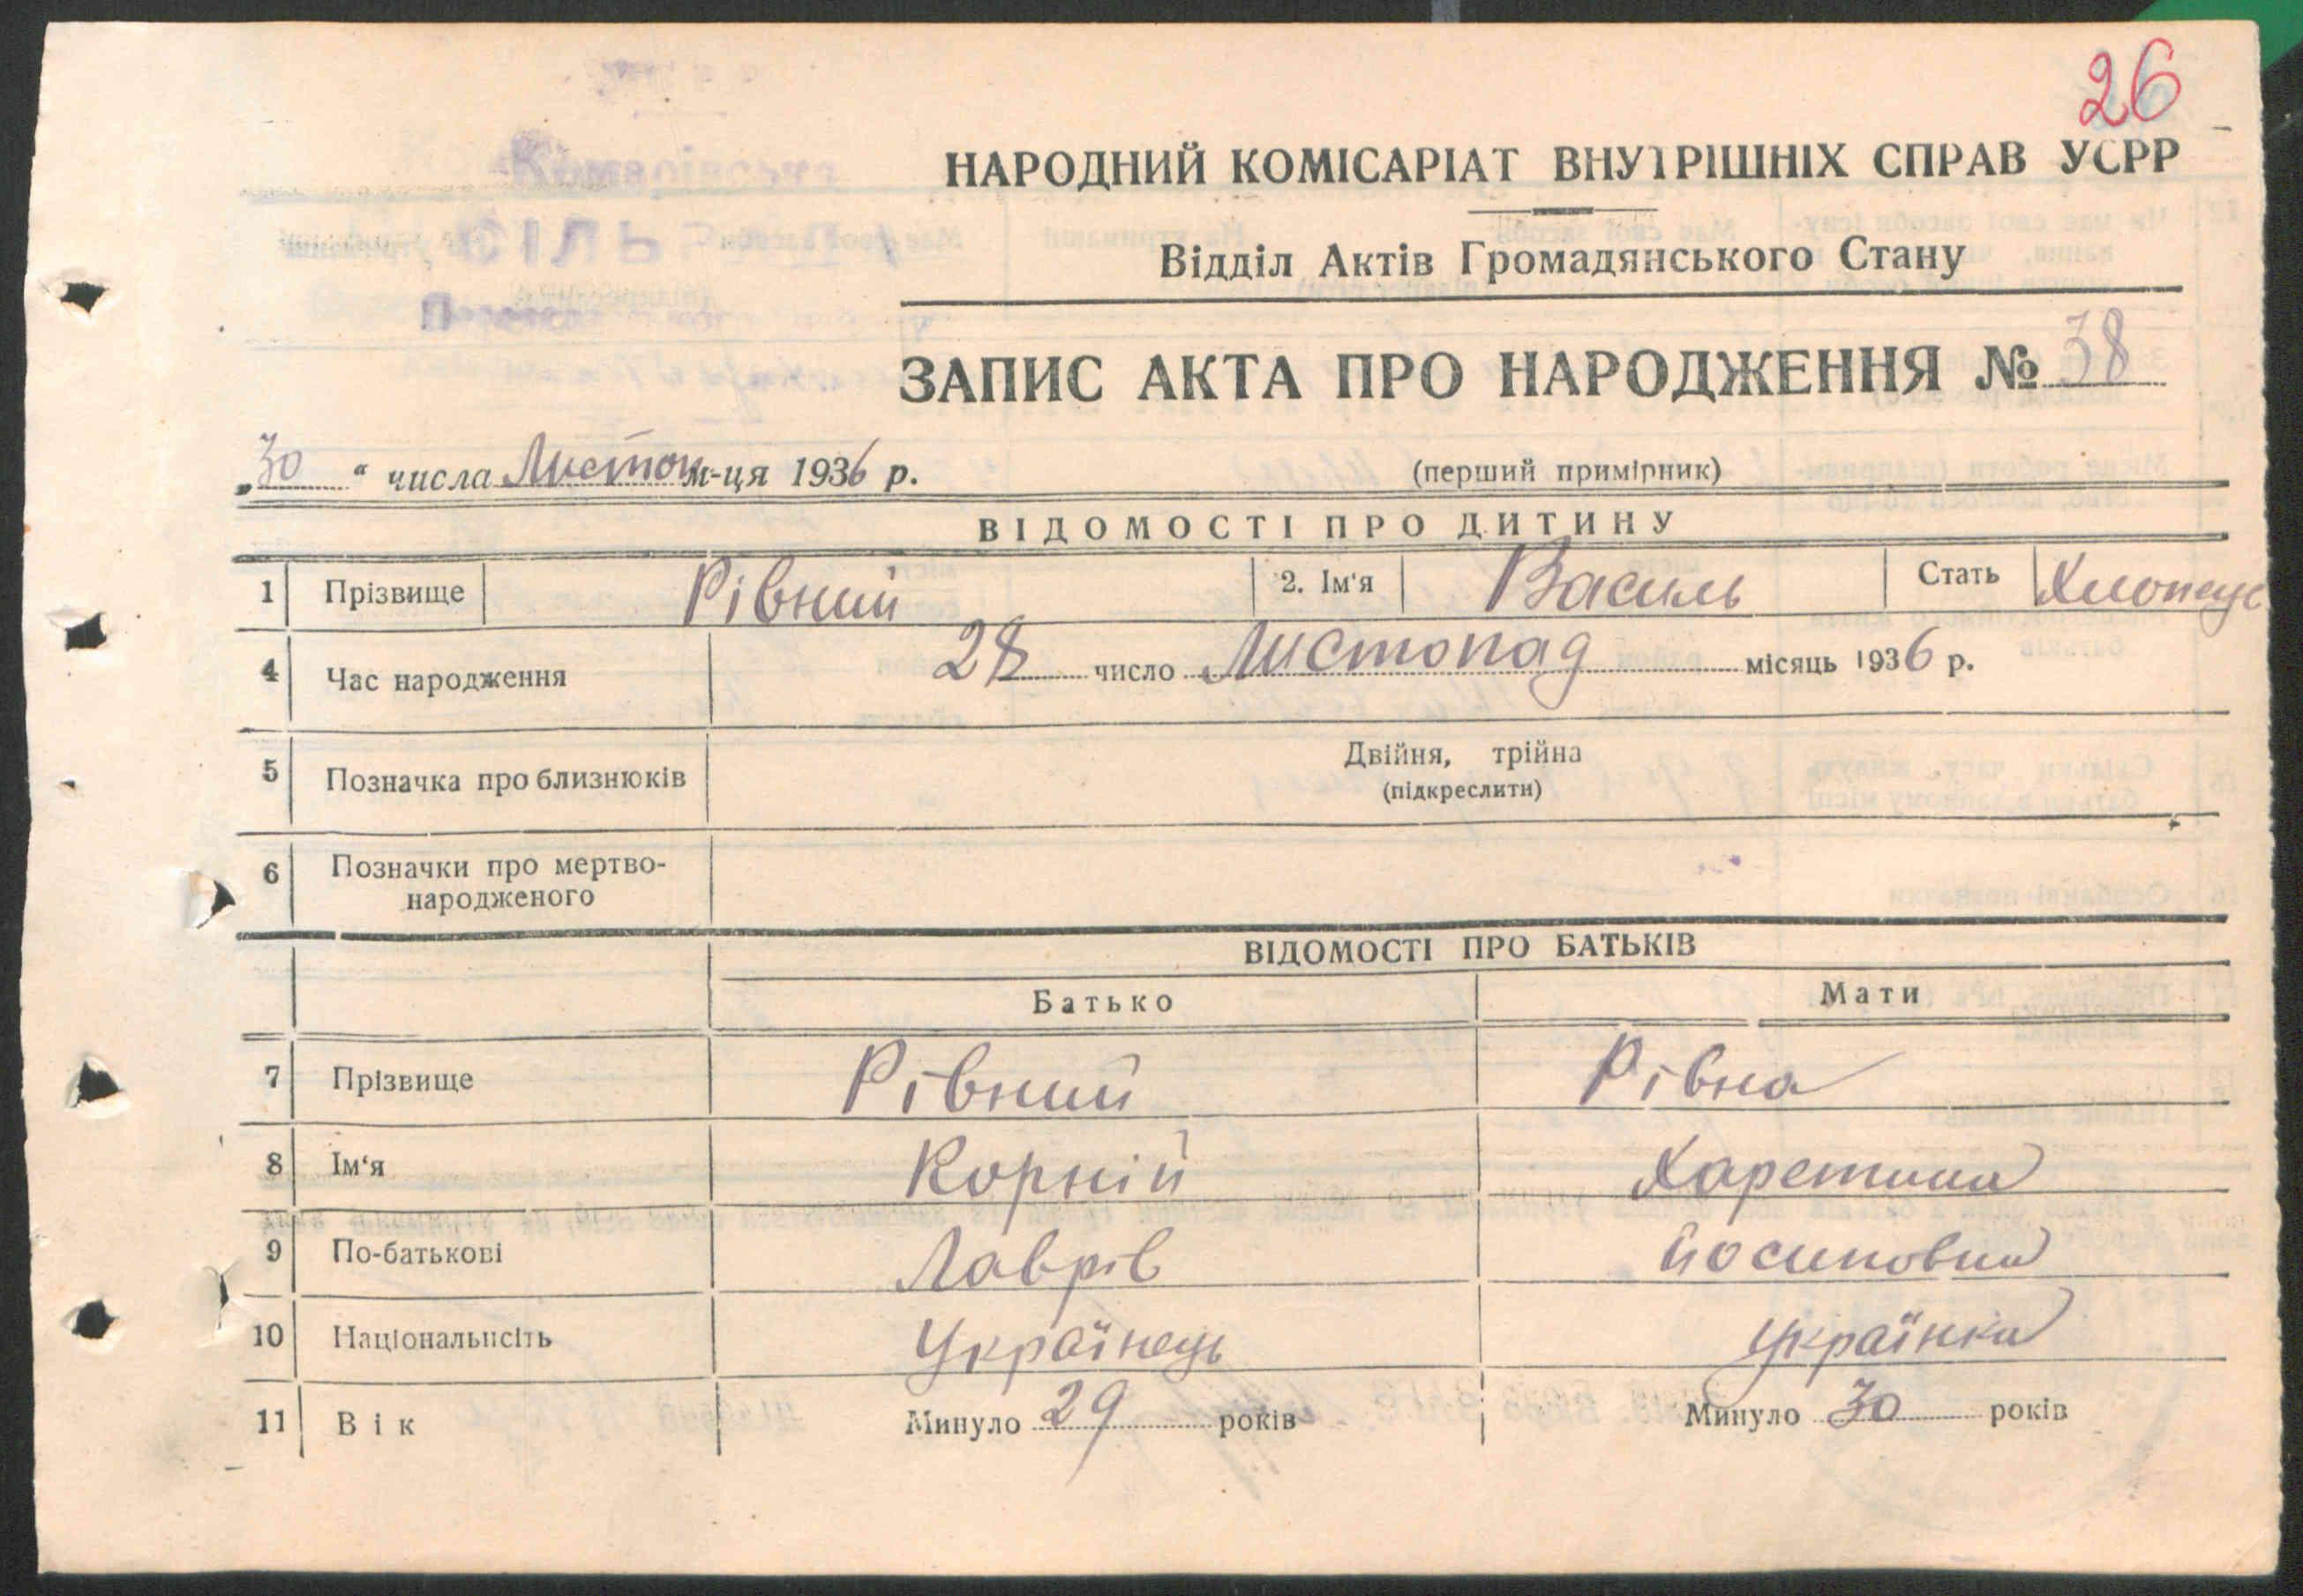 26
Комарівська
СІЛЬРАДА
НАРОДНИЙ КОМІСАРІАТ ВНУТРІШНІХ СПРАВ УСРР
Відділ Актів Громадянського Стану
ЗАПИС АКТА ПРО НАРОДЖЕННЯ № 38
„30“ числа Листоп м-ця 1936 р.
(перший примірник)
ВІДОМОСТІ ПРО ДИТИНУ
1 Прізвище Рівний 2. Ім'я Василь Стать Хлопець
4 Час народження 28 число Листопад місяць 1936 р.
5 Позначка про близнюків Двійня, трійна
(підкреслити)
6 Позначки про мертво-
народженого
ВІДОМОСТІ ПРО БАТЬКІВ
Батько Мати
7 Прізвище Рівний Рівна
8 Ім'я Корній Харетина
9 По-батькові Лаврів Йосиповна
10 Національність Українець Українка
11 Вік Минуло 29 років Минуло 30 років